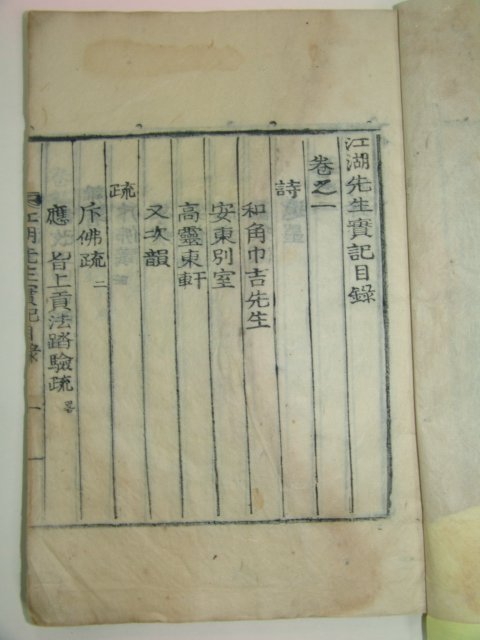 江湖先生實記目錄
卷之一
詩
和角巾吉先生
安東別室
高靈東軒
又次韻
疏
斥佛疏 二
應旨上貢法踏驗疏 畧
江湖先生實記目錄 一